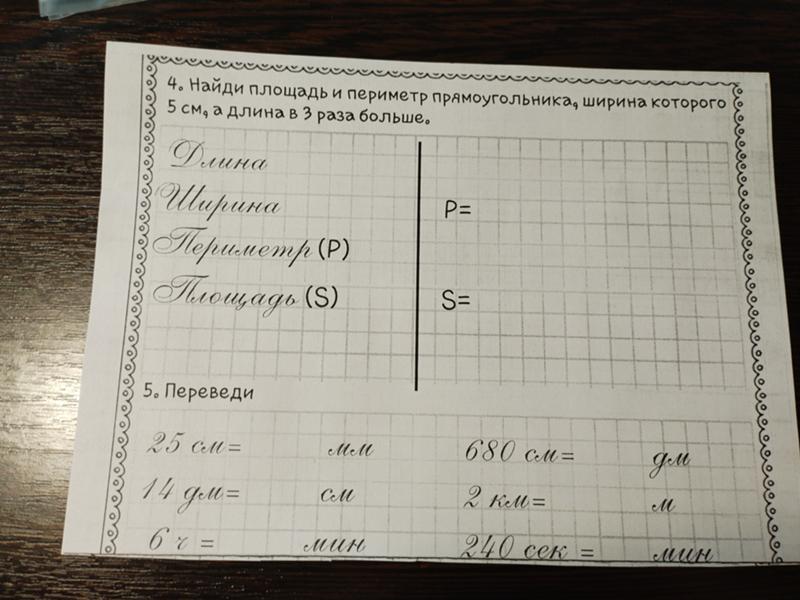 4. Найди площадь и периметр прямоугольника, ширина которого
5 см, а длина в 3 раза больше.
Длина
Ширина
P=
Периметр (P)
Площадь (S)
S=
5. Переведи
25 см= мм
680 см= дм
14 дм= см
2 км= м
6 ч = мин
240 сек = мин